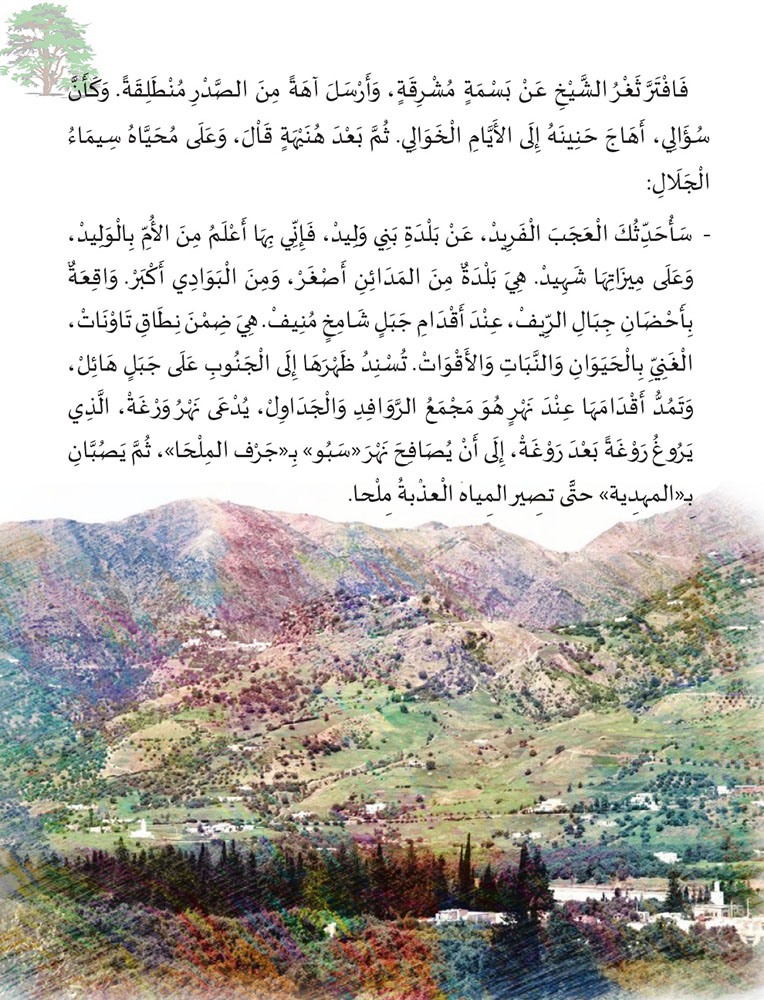 فَافْتَرَّ ثَغْرُ الشَّيْخِ عَنْ بَسْمَةٍ مُشْرِقَةٍ، وَأَرْسَلَ آهَةً مِنَ الصَّدْرِ مُنْطَلِقَةً. وَكَأَنَّ
سُؤَالِي، أَهَاجَ حَنِينَهُ إِلَى الأَيَّامِ الْخَوَالِي. ثُمَّ بَعْدَ هُنَيْهَةٍ قَاْلَ، وَعَلَى مُحَيَّاهُ سِيمَاءُ
الْجَلَالِ:
- سَأُحَدِّثُكَ الْعَجَبَ الْفَرِيدْ، عَنْ بَلْدَةِ بَنِي وَلِيدْ، فَإِنِّي بِهَا أَعْلَمُ مِنَ الأُمِّ بِالْوَلِيدْ،
وَعَلَى مِيزَاتِهَا شَهِيدْ. هِيَ بَلْدَةٌ مِنَ المَدَائِنِ أَصْغَرْ، وَمِنَ الْبَوَادِي أَكْبَرْ. وَاقِعَةٌ
بِأَحْضَانِ جِبَالِ الرِّيفْ، عِنْدَ أَقْدَامِ جَبَلٍ شَامِخٍ مُنِيفْ. هِيَ ضِمْنَ نِطَاقِ تَاوْنَاتْ،
الْغَنِيِّ بِالْحَيَوَانِ وَالنَّبَاتِ وَالأَقْوَاتْ. تُسْنِدُ ظَهْرَهَا إِلَى الْجَنُوبِ عَلَى جَبَلٍ هَائِلْ،
وَتَمُدُّ أَقْدَامَهَا عِنْدَ نَهْرٍ هُوَ مَجْمَعُ الرَّوَافِدِ وَالْجَدَاوِلْ، يُدْعَى نَهْرُ وَرْغَةْ، الَّذِي
يَرُوغُ رَوْغَةً بَعْدَ رَوْغَةْ، إِلَى أَنْ يُصَافِحَ نَهْرَ «سَبُو» بِـ«جَرْف المِلْحَا»، ثُمَّ يَصُبَّانِ
بِـ«المهدِية» حتَّى تصِير المِياه الْعذْبةُ مِلْحا.